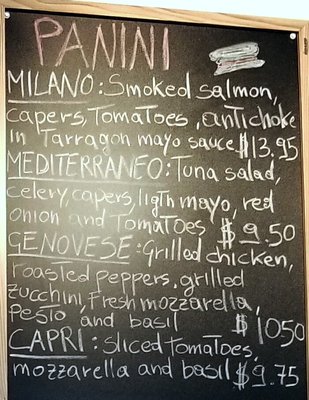 PANINI
MILANO: Smoked salmon,
capers, Tomatoes, antichoke
in Tarragon mayo sauce $13.95
MEDITERRANEO: Tuna salad,
celery, capers, ligth mayo, red
onion and Tomatoes $9.50
GENOVESE: Grilled chicken,
roasted peppers, grilled
zucchini, Fresh mozzarella,
pesto and basil $1050
CAPRI: Sliced Tomatoes,
mozzarella and basil $9.75